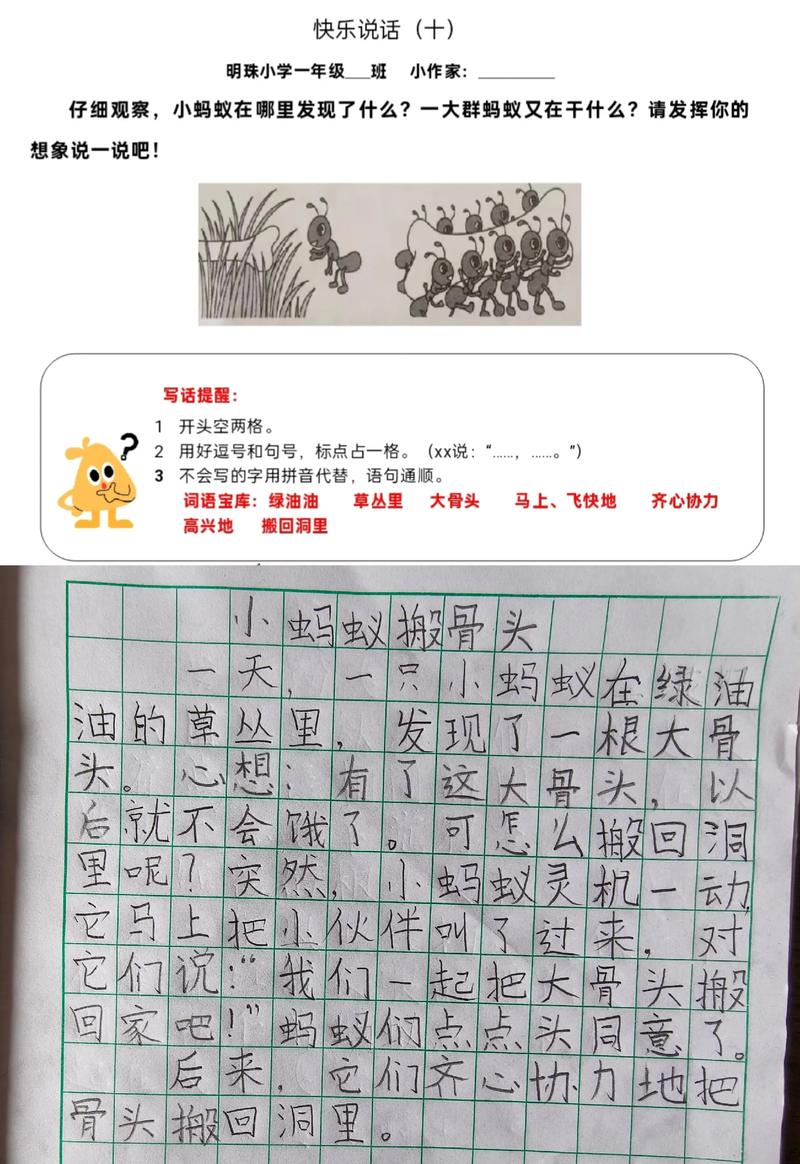 快乐说话（十）
明珠小学一年级___班 小作家：_________
仔细观察，小蚂蚁在哪里发现了什么？一大群蚂蚁又在干什么？请发挥你的
想象说一说吧！
写话提醒：
1 开头空两格。
2 用好逗号和句号，标点占一格。（xx说：“……，……。”）
3 不会写的字用拼音代替，语句通顺。
词语宝库：绿油油 草丛里 大骨头 马上、飞快地 齐心协力
高兴地 搬回洞里
小蚂蚁搬骨头
一天，一只小蚂蚁在绿油
油的草丛里，发现了一根大骨
头。心想：有了这大骨头，以
后就不会饿了。可怎么搬回洞
里呢？突然，小蚂蚁灵机一动，
它马上把小伙伴叫了过来，对
它们说：“我们一起把大骨头搬
回家吧！”蚂蚁们点点头同意了。
后来，它们齐心协力地把
骨头搬回洞里。